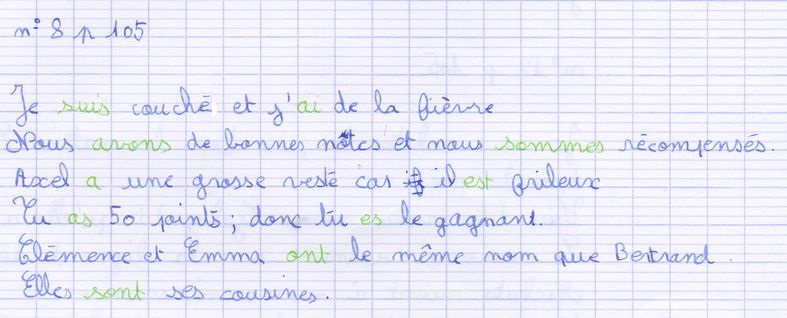 n° 8 p 105
Je suis couché et j'ai de la fièvre
Nous avons de bonnes notes et nous sommes récompensés.
Axel a une grosse veste car il est frileux
Tu as 50 points ; donc tu es le gagnant.
Clémence et Emma ont le même nom que Bertrand.
Elles sont ses cousines.